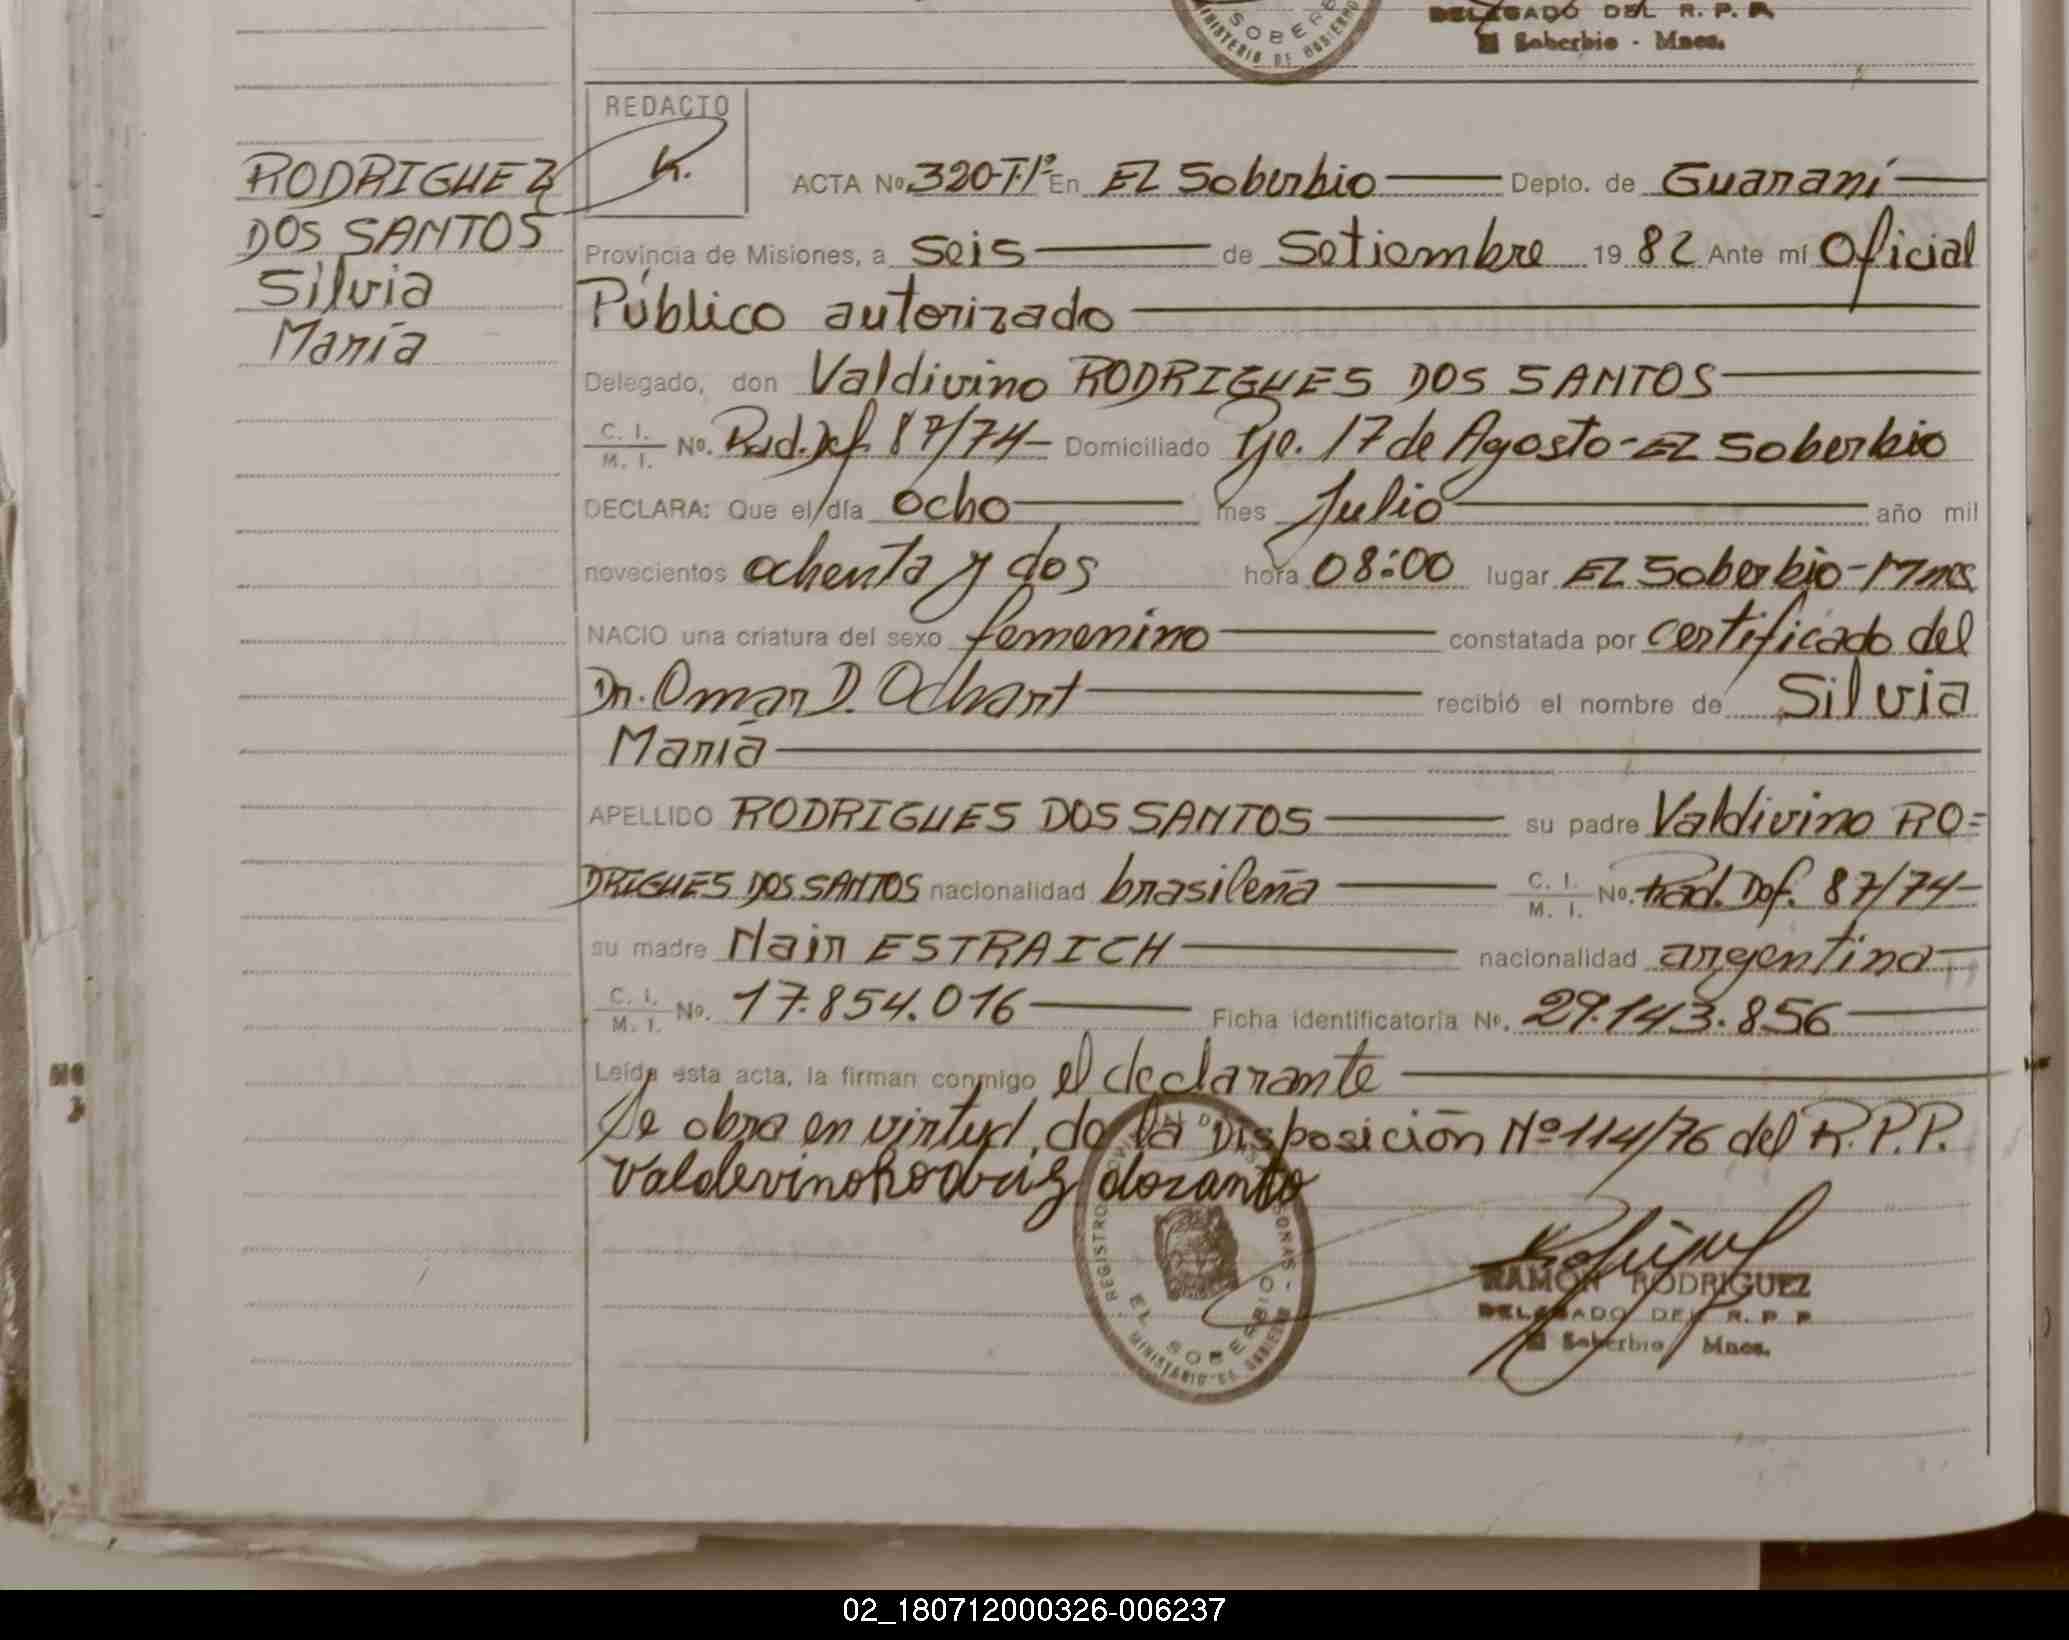 SOBERBIO
MINISTERIO DE GOBIERNO
DELEGADO DEL R. P. P.
El Soberbio - Mnes.
REDACTO
RODRIGUEZ
DOS SANTOS
Silvia
María
ACTA No. 320-Tº1º En El Soberbio Depto. de Guaraní
Provincia de Misiones, a seis de Setiembre 1982 Ante mí Oficial
Público autorizado
Delegado, don Valdivino RODRIGUES DOS SANTOS
C. I. M. I. No. Rad. Def. 87/74 Domiciliado Pje. 17 de Agosto - El Soberbio
DECLARA: Que el día ocho mes Julio año mil
novecientos ochenta y dos hora 08:00 lugar El Soberbio - Mnes
NACIO una criatura del sexo femenino constatada por certificado del
Dr. Omar D. Odhant recibió el nombre de Silvia
María
APELLIDO RODRIGUES DOS SANTOS su padre Valdivino RO=
DRIGUES DOS SANTOS nacionalidad brasileña C. I. M. I. No. Rad. Def. 87/74
su madre Nair ESTRAICH nacionalidad argentina
C. I. M. I. No. 17.854.016 Ficha identificatoria No. 29.143.856
Leída esta acta, la firman conmigo el declarante
Se obra en virtud de la Disposición Nº 114/76 del R.P.P.
Valdevino Rodrigz dozanto
EL SOBERBIO
MINISTERIO DE GOBIERNO
RAMON RODRIGUEZ
DELEGADO DEL R. P. P
El Soberbio Mnes.
02_180712000326-006237